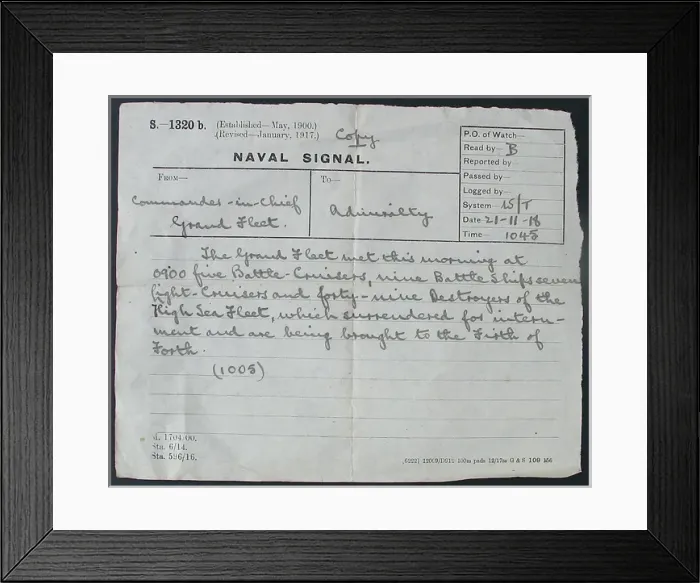 S.—1320 b. (Established—May, 1900.)
(Revised—January, 1917.)
Copy
NAVAL SIGNAL.
P.O. of Watch—
Read by— B
Reported by
Passed by—
Logged by—
System— 15/T
Date 21-11-18
Time— 1045
FROM—
Commander-in-Chief
Grand Fleet.
To—
Admiralty
The Grand Fleet met this morning at
0900 five Battle-Cruisers, nine Battle Ships seven
light-Cruisers and forty-nine Destroyers of the
High Sea Fleet, which surrendered for intern-
ment and are being brought to the Firth of
Forth.
(1005)
d. 1704/00.
Sta. 6/14.
Sta. 536/16.
G & S 109